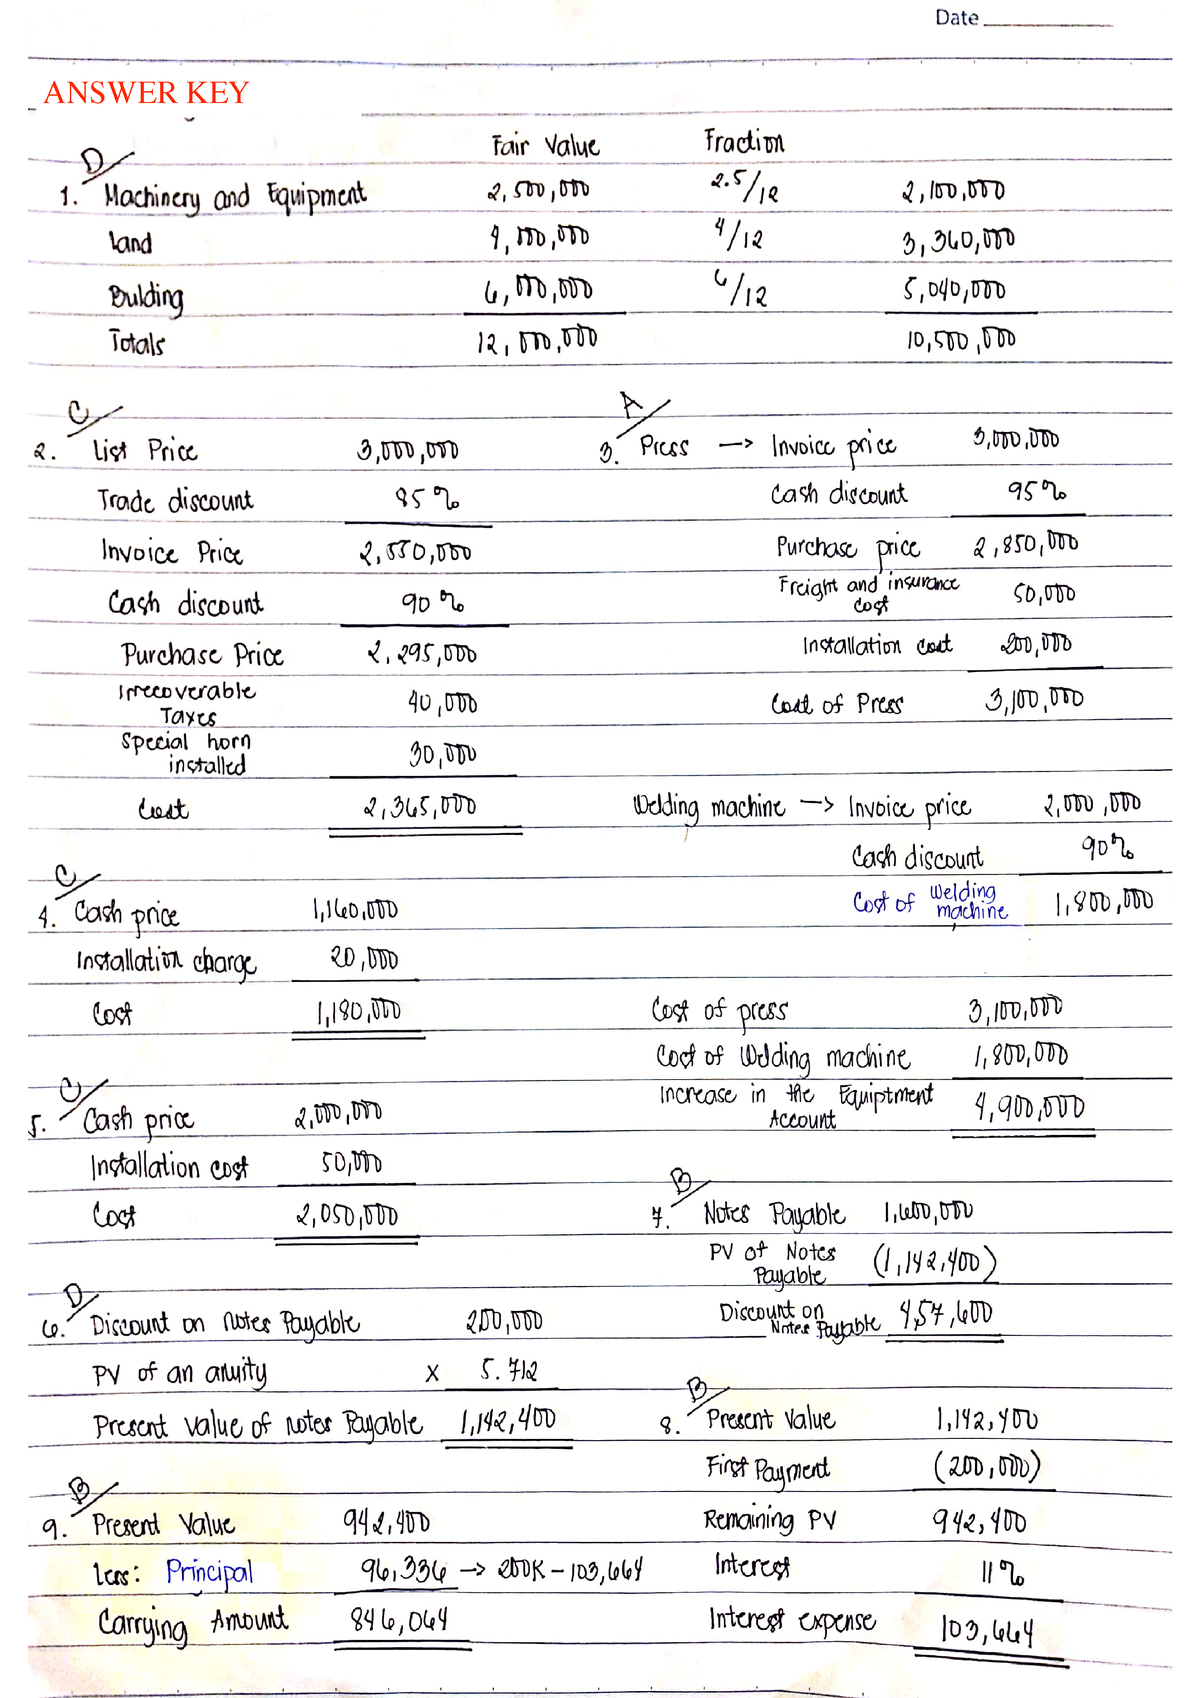 Date
ANSWER KEY
Fair Value Fraction
D
1. Machinery and Equipment 2,500,000 2.5/12 2,100,000
Land 4,000,000 4/12 3,360,000
Bulding 6,000,000 6/12 5,040,000
Totals 12,000,000 10,500,000
C
2. List Price 3,000,000
Trade discount 85%
Invoice Price 2,550,000
Cash discount 90%
Purchase Price 2,295,000
Irrecoverable
Taxes 40,000
Special horn
installed 30,000
Cost 2,365,000
A
3. Press -> Invoice price 3,000,000
Cash discount 95%
Purchase price 2,850,000
Freight and insurance
cost 50,000
Installation cost 200,000
Cost of Press 3,100,000
Welding machine -> Invoice price 2,000,000
Cash discount 90%
Cost of Welding
machine 1,800,000
Cost of press 3,100,000
Cost of Welding machine 1,800,000
Increase in the Equiptment
Account 4,900,000
C
4. Cash price 1,160,000
Installation charge 20,000
Cost 1,180,000
C
5. Cash price 2,000,000
Installation cost 50,000
Cost 2,050,000
D
6. Discount on Notes Payable 200,000
PV of an anuity x 5.712
Present value of notes Payable 1,142,400
B
7. Notes Payable 1,600,000
PV of Notes
Payable (1,142,400)
Discount on
Notes Payable 457,600
B
8. Present Value 1,142,400
First Payment (200,000)
Remaining PV 942,400
Interest 11%
Interest expense 103,664
B
9. Present Value 942,400
Less: Principal 96,336 -> 200K - 103,664
Carrying Amount 846,064